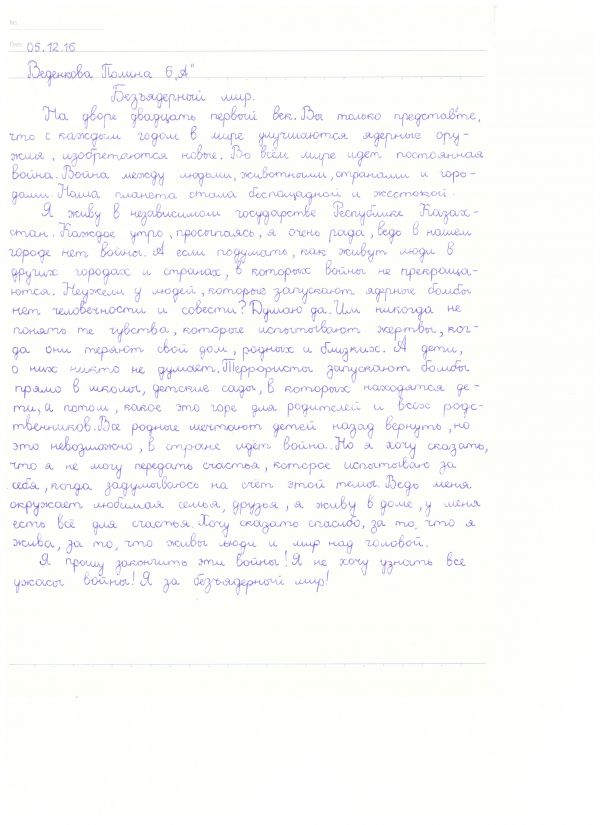 No.
Date 05.12.16
Веденкова Полина 6 „А"
Безъядерный мир.
На дворе двадцать первый век. Вы только представьте,
что с каждым годом в мире улучшаются ядерные ору-
жия, изобретаются новые. Во всём мире идет постоянная
война. Война между людьми, животными, странами и горо-
дами. Наша планета стала беспощадной и жестокой.
Я живу в независимом государстве Республике Казах-
стан. Каждое утро, просыпаясь, я очень рада, ведь в нашем
городе нет войны. А если подумать, как живут люди в
других городах и странах, в которых войны не прекраща-
ются. Неужели у людей, которые запускают ядерные бомбы
нет человечности и совести? Думаю да. Им никогда не
понять те чувства, которые испытывают жертвы, ког-
да они теряют свой дом, родных и близких. А дети,
о них никто не думает. Террористы запускают бомбы
прямо в школы, детские сады, в которых находятся де-
ти, а потом, какое это горе для родителей и всех родс-
твенников. Все родные мечтают детей назад вернуть, но
это невозможно, в стране идет война. Но я хочу сказать,
что я не могу передать счастья, которое испытываю за
себя, когда задумываюсь на счёт этой темы. Ведь меня
окружает любимая семья, друзья, я живу в доме, у меня
есть всё для счастья. Хочу сказать спасибо, за то, что я
жива, за то, что живы люди и мир над головой.
Я прошу закончить эти войны! Я не хочу узнать все
ужасы войны! Я за безъядерный мир!